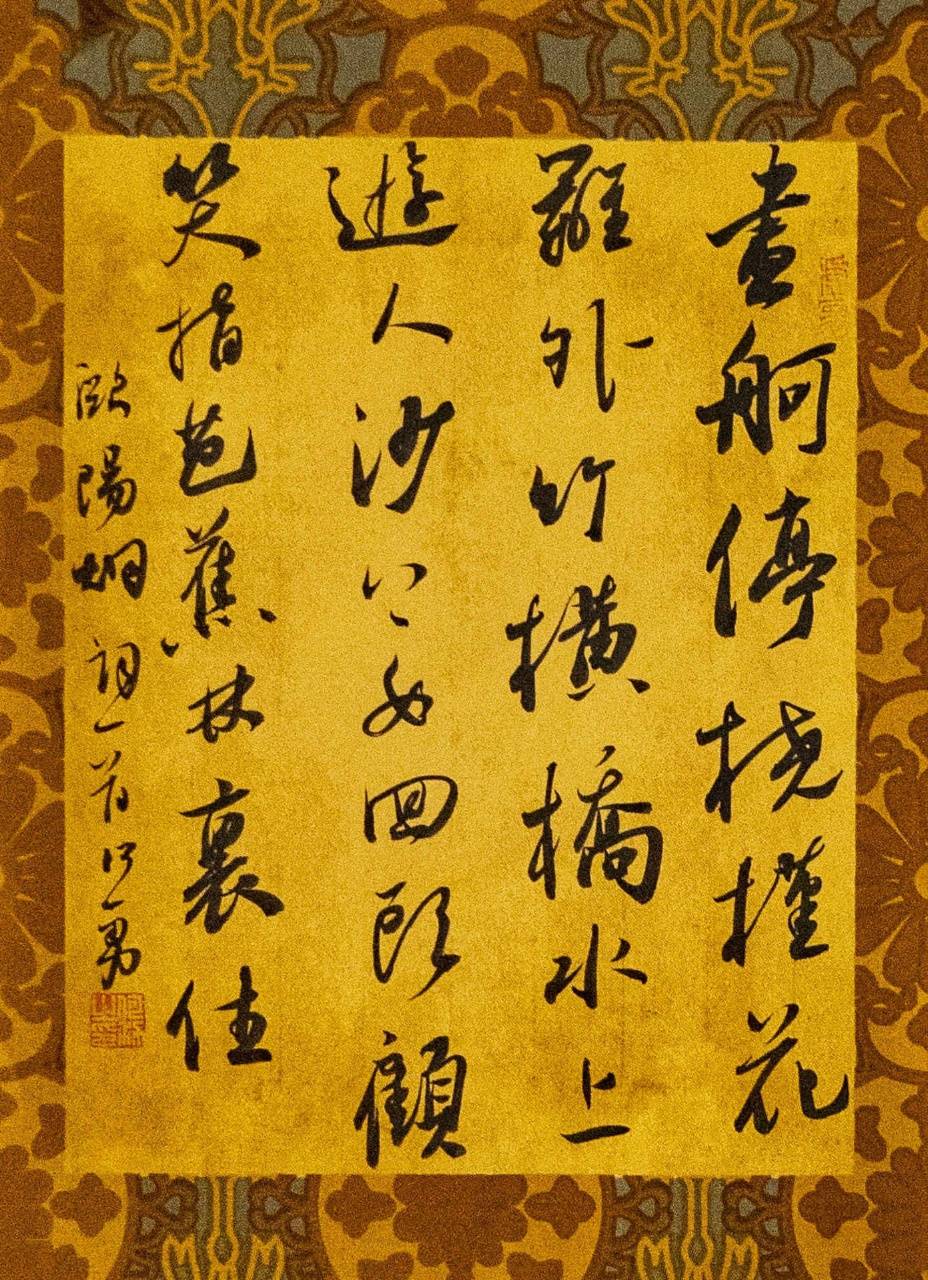 畫舸停橈槿花
籬外竹橫橋水上
遊人沙上女回頭顧
笑指芭蕉林裏住
歐陽炯詞一首